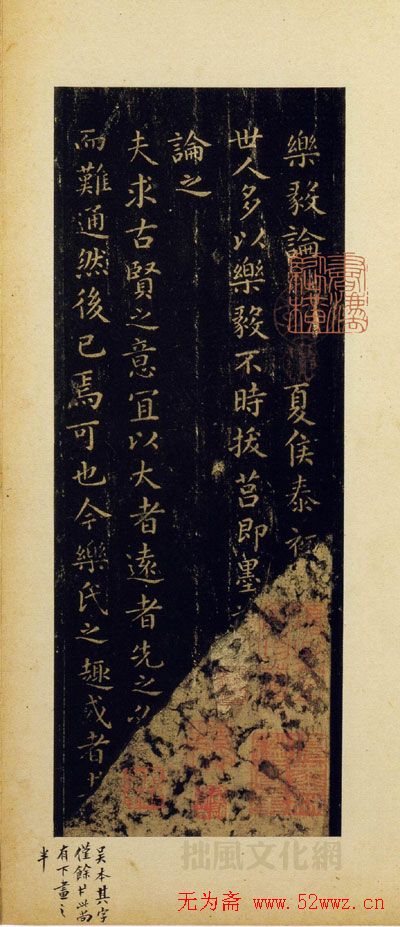 樂毅論 夏侯泰
世人多以樂毅不時拔莒即墨
論之
夫求古賢之意宜以大者遠者先之
而難通然後已焉可也今樂氏之趣或者
吴本其字
僅餘 此尚
有下畫之
半
拙風文化網
无为斋 www.52wwz.cn